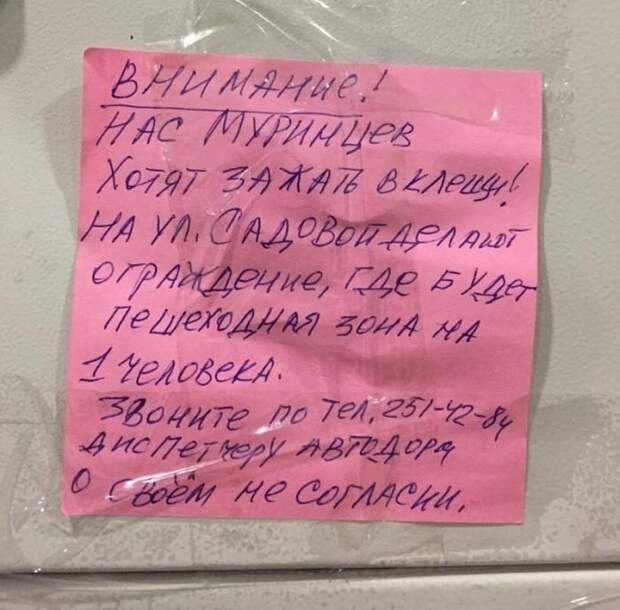 ВНИМАНИЕ!
НАС МУРИНЦЕВ
ХОТЯТ ЗАЖАТЬ В КЛЕЩИ!
НА УЛ. САДОВОЙ ДЕЛАЮТ
ОГРАЖДЕНИЕ, ГДЕ БУДЕТ
ПЕШЕХОДНАЯ ЗОНА НА
1 ЧЕЛОВЕКА.
ЗВОНИТЕ ПО ТЕЛ. 251-42-84
ДИСПЕТЧЕРУ АВТОДОРА
О СВОЁМ НЕ СОГЛАСИИ.